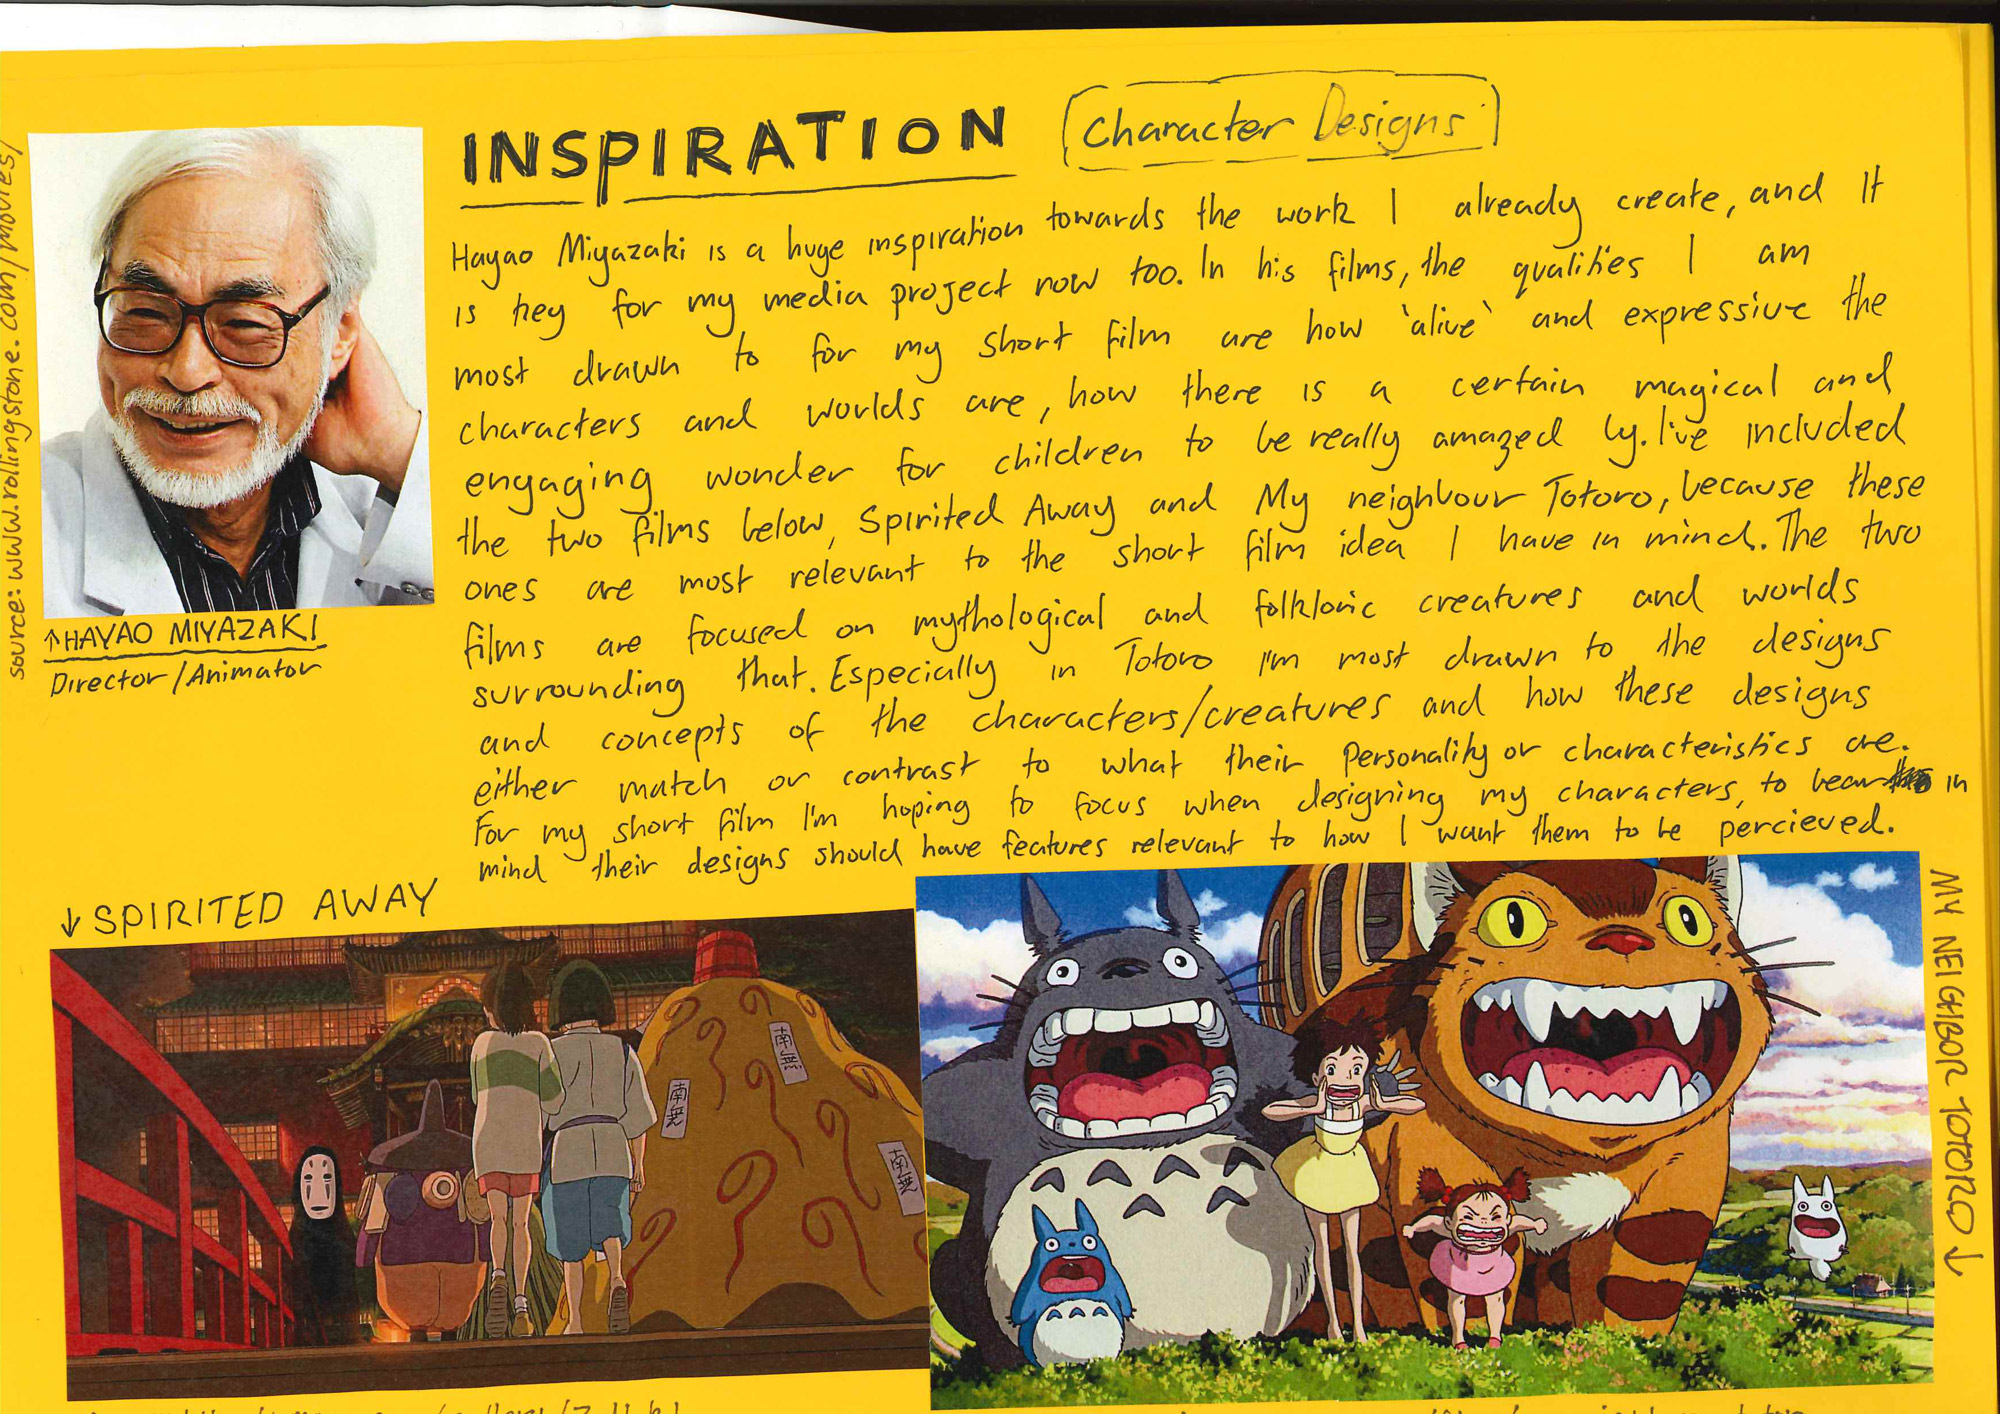 INSPIRATION
Character Designs
source: www.rollingstone.com/movies/
↑HAYAO MIYAZAKI
Director/Animator
Hayao Miyazaki is a huge inspiration towards the work I already create, and It
is key for my media project now too. In his films, the qualities I am
most drawn to for my short film are how 'alive' and expressive the
characters and worlds are, how there is a certain magical and
engaging wonder for children to be really amazed by. I've included
the two films below, Spirited Away and My neighbour Totoro, because these
ones are most relevant to the short film idea I have in mind. The two
films are focused on mythological and folkloric creatures and worlds
surrounding that. Especially in Totoro I'm most drawn to the designs
and concepts of the characters/creatures and how these designs
either match or contrast to what their personality or characteristics are.
For my short film I'm hoping to focus when designing my characters, to bear in
mind their designs should have features relevant to how I want them to be percieved.
↓ SPIRITED AWAY
MY NEIGHBOR TOTORO ↓
南無
南無
南無